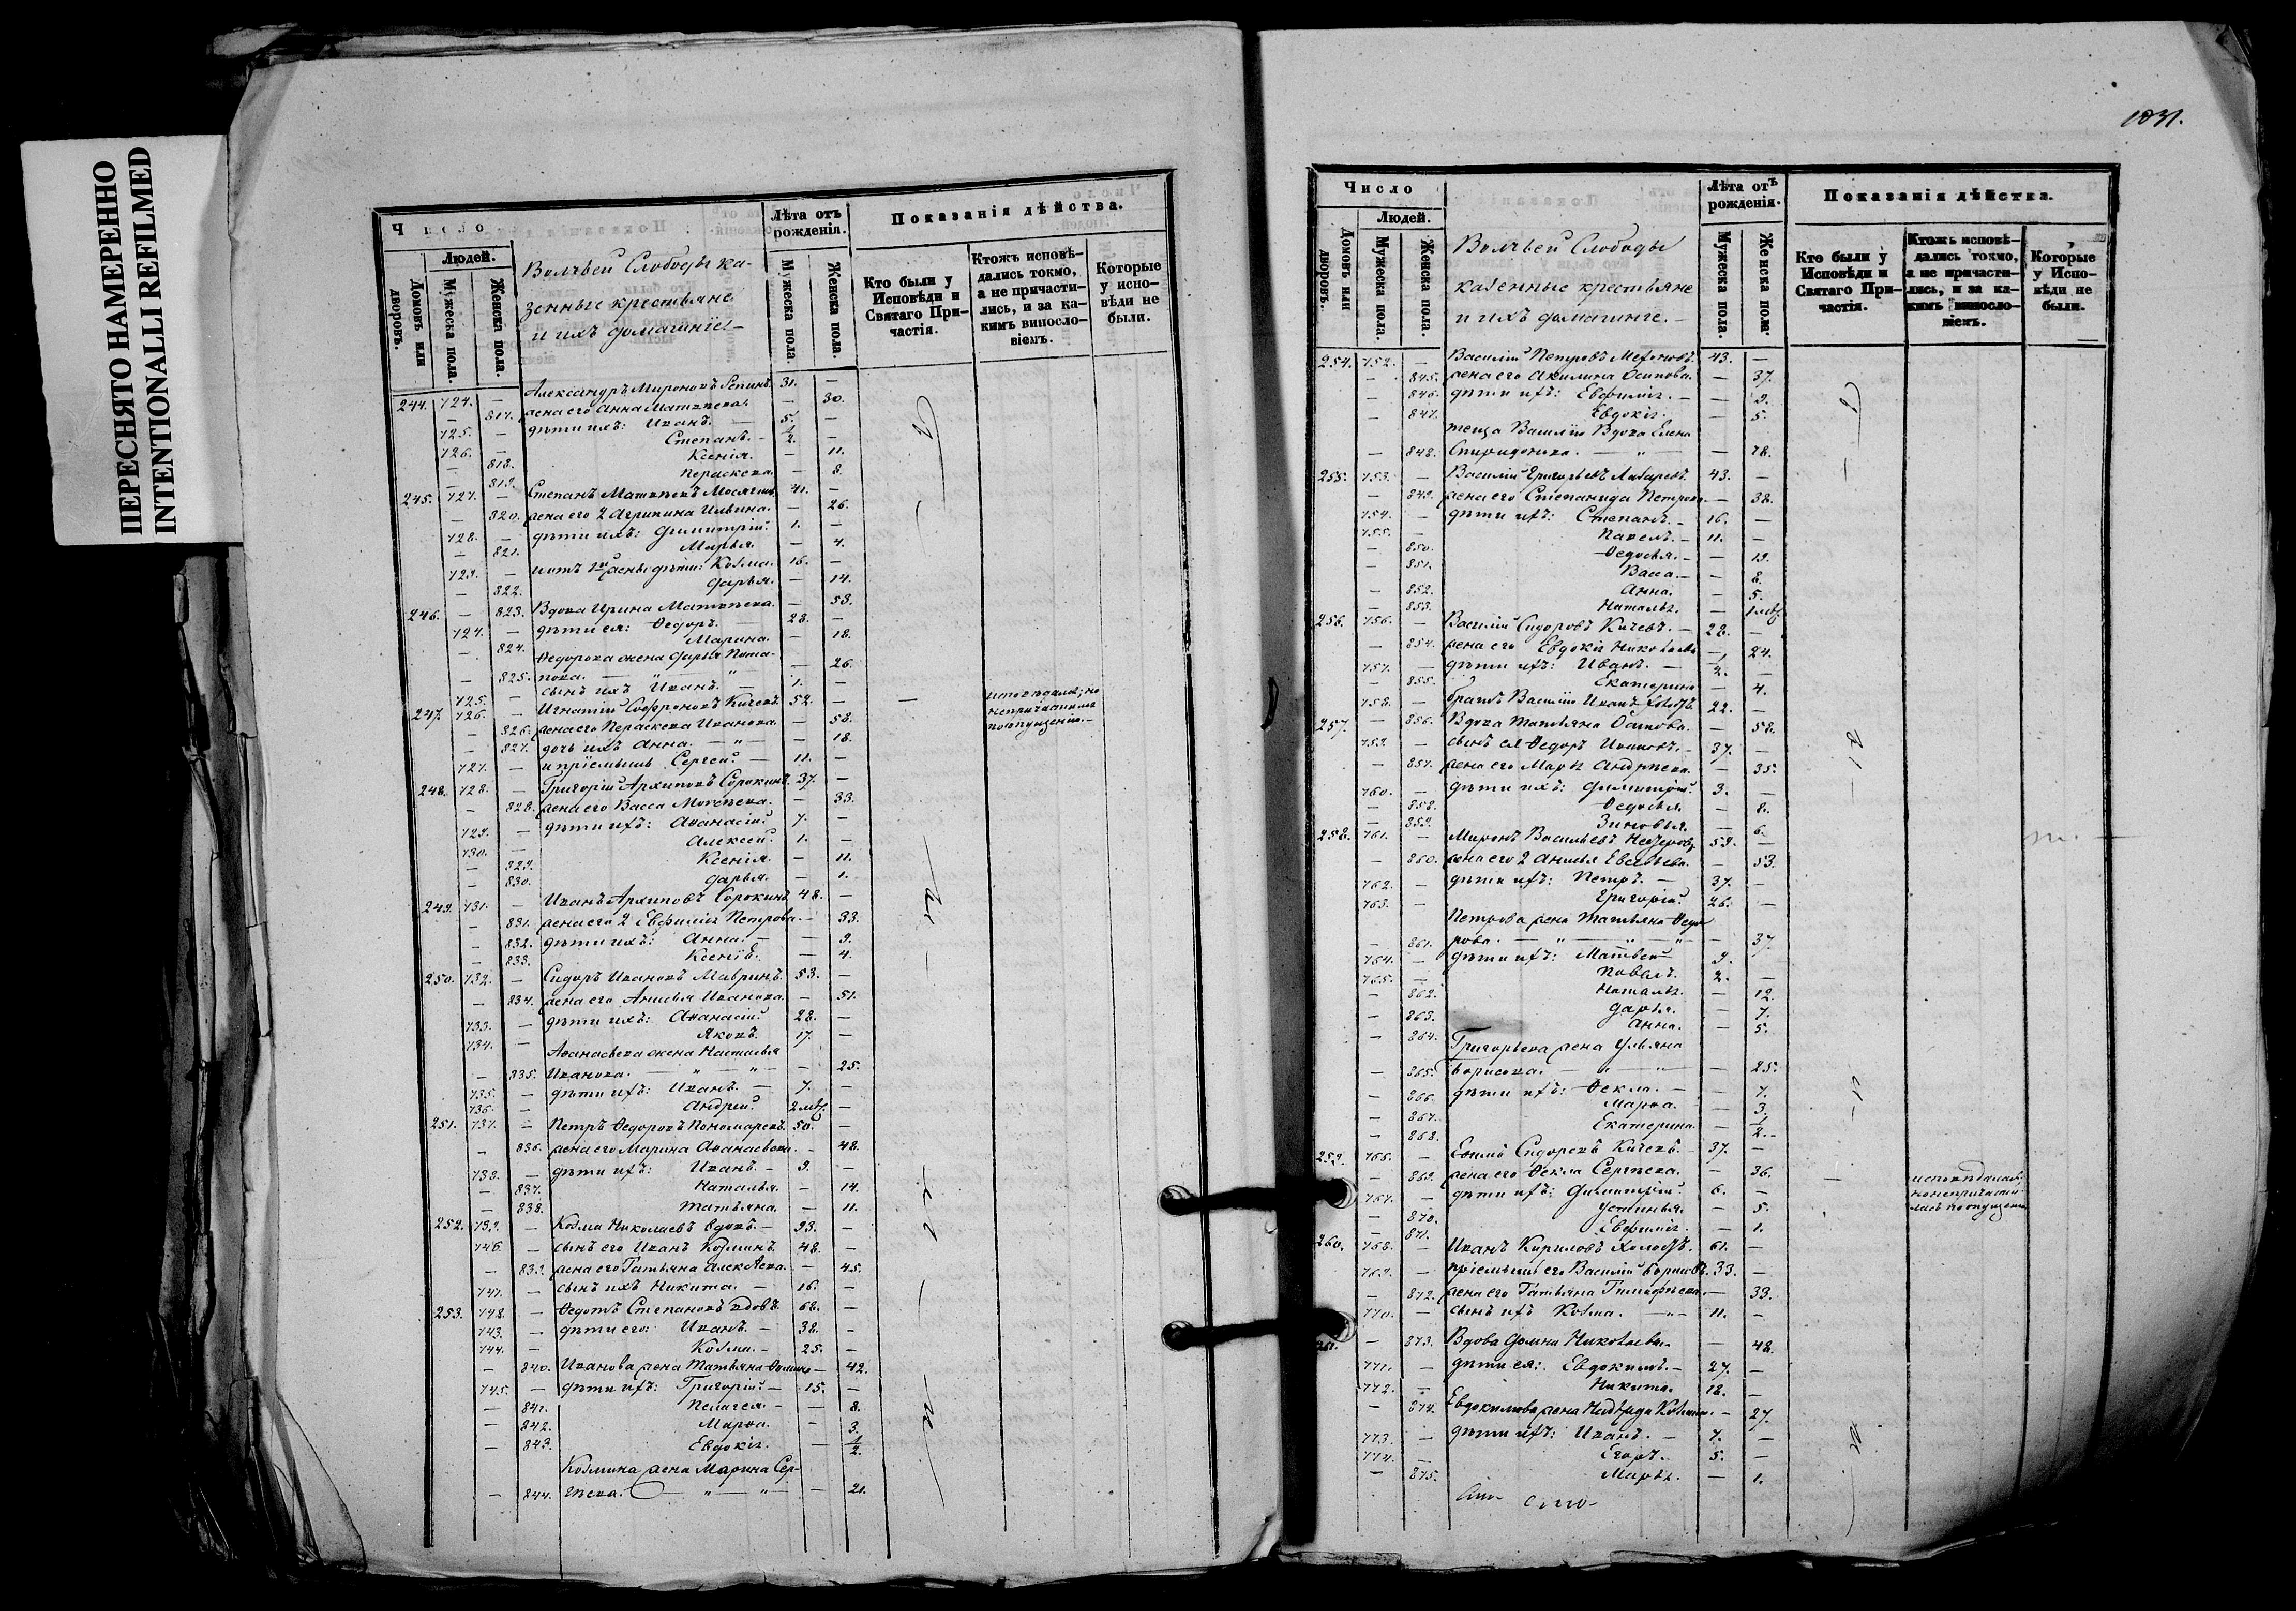 ПЕРЕСНЯТО НАМЕРЕННО
INTENTIONALLI REFILMED
Число
Людей.
Домовъ или дворовъ.
Мужеска пола.
Женска пола.
Волчьей Слободы ка-
зенные крестьяне
и ихъ домашніе
Лѣта отъ рожденія.
Мужеска пола.
Женска пола.
Показанія дѣйства.
Кто были у Исповѣди и Святаго При-частія.
Ктожъ исповѣ-дались токмо, а не причасти-лись, и за ка-кимъ виносло-віемъ.
Которые у испо-вѣди не были.
244. 724. — Александръ Мироновъ Репинъ 31. —
— 817. жена его Анна Матвѣева. — 30.
725. — дѣти ихъ: Иванъ. — 5. —
726. — Степанъ. — 1/2. —
— 818. Ксенія. — 11.
— 819. Параскева. — 8.
245. 727. — Степанъ Матвѣевъ 41. —
— 820. жена его 2 Агрипина Ильина. — 26.
728. — дѣти ихъ: Димитрій. 1. —
— 821. Марья. — 4.
729. — жены дѣти: Козма. 16. —
— 822. Дарья. — 14.
246. — 823. Вдова Ирина Матвѣева. — 58.
724. — дѣти ея: Ѳедоръ. — 28. —
— 824. Марина. — 18.
Ѳедорова жена Дарья Пота-
— 825. пова. — 26.
725. — сынъ ихъ Иванъ. — 1. —
247. 726. — Игнатій Софроновъ Кичевъ 52. — — исповѣдался, но
непричастился
по опущенію.
— 826. жена его Параскева Иванова. — 58.
— 827. дочь ихъ Анна. — 18.
727. — и пріемышъ Сергей. — 11. —
248. 728. — Григорій Архиповъ Сорокинъ. 37. —
— 828. жена его Васса Моисеева. — 33.
729. — дѣти ихъ: Аѳанасій. 7. —
730. — Алексей. 1. —
— 829. Ксенія. — 11.
— 830. Дарья. — 1.
249. 731. — Иванъ Архиповъ Сорокинъ 48. —
— 831. жена его 2 Евфимія Петрова. — 33.
— 832. дѣти ихъ: Анна. — 9.
— 833. Ксенія. — 4.
250. 732. — Сидоръ Ивановъ Мавринъ. 53. —
— 834. жена его Анисья Иванова. — 51.
733. — дѣти ихъ: Аѳанасій. 28. —
734. — Яковъ. 17. —
Аѳанасьева жена Наталья
— 835. Иванова. — 25.
735. — дѣти ихъ: Иванъ. — 7. —
736. — Андрей. 2 мѣс. —
251. 737. — Петръ Ѳедоровъ Пономаревъ. 50. —
— 836. жена его Марина Аѳанасьева. — 48.
738. — дѣти ихъ: Иванъ. — 9. —
— 837. Наталья. — 14.
— 838. Татьяна. — 11.
252. 739. — Козма Николаевъ вдовъ. — 93. —
746. — сынъ его Иванъ Козминъ. 48. —
— 839. жена его Татьяна Алексѣева. — 45.
747. — сынъ ихъ Никита. — 16. —
253. 748. — Ѳедотъ Степановъ вдовъ. 68. —
743. — дѣти его: Иванъ. — 38. —
744. — Козма. — 25. —
— 840. Иванова жена Татьяна Ѳомина — 42.
745. — дѣти ихъ: Григорій. — 15. —
— 841. Пелагея. — 8.
— 842. Марѳа. — 3.
— 843. Евдокія. — 1/2.
Козмина жена Марина Сер-
— 844. гѣева. — 21.
1031.
Число
Людей.
Домовъ или дворовъ.
Мужеска пола.
Женска пола.
Волчьей Слободы
казенные крестьяне
и ихъ домашніе.
Лѣта отъ рожденія.
Мужеска пола.
Женска пола.
Показанія дѣйства.
Кто были у Исповѣди и Святаго При-частія.
Ктожъ исповѣ-дались токмо, а не причасти-лись, и за ка-кимъ винословіемъ.
Которые у Испо-вѣди не были.
254. 752. — Василій Петровъ 43. —
— 845. жена его Акилина Осипова. — 37.
— 846. дѣти ихъ: Евфимія. — 9.
— 847. Евдокія. — 5.
теща Василія Вдова Елена
— 848. Спиридонова. — 78.
255. 753. — Василій Григорьевъ Лазаревъ. 43. —
— 849. жена его Степанида Петрова. — 38.
754. — дѣти ихъ: Степанъ. — 16. —
755. — Павелъ. — 11. —
— 850. Ѳедосья. — 13.
— 851. Васса. — 8.
— 852. Анна. — 5.
— 853. Наталья. — 1 мѣс.
256. 756. — Василій Сидоровъ Кичевъ. — 28. —
— 854. жена его Евдокія Николаева — 24.
757. — дѣти ихъ: Иванъ. — 1/2. —
— 855. Екатерина — 4.
758. — братъ Василія Иванъ 22. —
257. — 856. Вдова Татьяна Осипова. — 58.
759. — сынъ ея Ѳедоръ Ивановъ. — 37. —
— 857. жена его Марья Андреева. — 35.
760. — дѣти ихъ: Димитрій. 3. —
— 858. Ѳедосья. — 8.
— 859. Зиновья. — 6.
258. 761. — Миронъ Васильевъ 59. —
— 860. жена его 2 Анисья Евсеева. — 53.
762. — дѣти ихъ: Петръ. — 37. —
763. — Григорій. 26. —
Петрова жена Татьяна Ѳедо
— 861. рова. — 37.
764. — дѣти ихъ: Матвей 9. —
765. — Павелъ. 2. —
— 862. Наталья. — 12.
— 863. Дарья. — 7.
— 864. Анна. — 5.
Григорьева жена Ульяна
— 865. Борисова. — 25.
— 866. дѣти ихъ: Ѳекла. — 7.
— 867. Марѳа. — 3.
— 868. Екатерина. — 1/2.
259. 766. — Ефимъ Сидоровъ Кичевъ. 37. —
— 869. жена его Ѳекла Сергѣева. — 36. — исповѣдалась,
но непричасти
лась по опущенію
767. — дѣти ихъ: Димитрій. 6. —
— 870. Устинья. — 5.
— 871. Евфимія. — 1.
260. 768. — Иванъ Кириловъ 61. —
769. — пріемышъ его Василій Борисовъ. 33. —
— 872. жена его Татьяна Тимофѣева. — 33.
770. — сынъ ихъ Козма. — 11. —
261. — 873. Вдова Домна Николаева. — 48.
771. — дѣти ея: Евдокимъ. — 27. —
772. — Никита. 18. —
— 874. Евдокимова жена Надежда — 27.
773. — дѣти ихъ: Иванъ. — 7. —
774. — Егоръ. — 5. —
— 875. Марья. — 1.